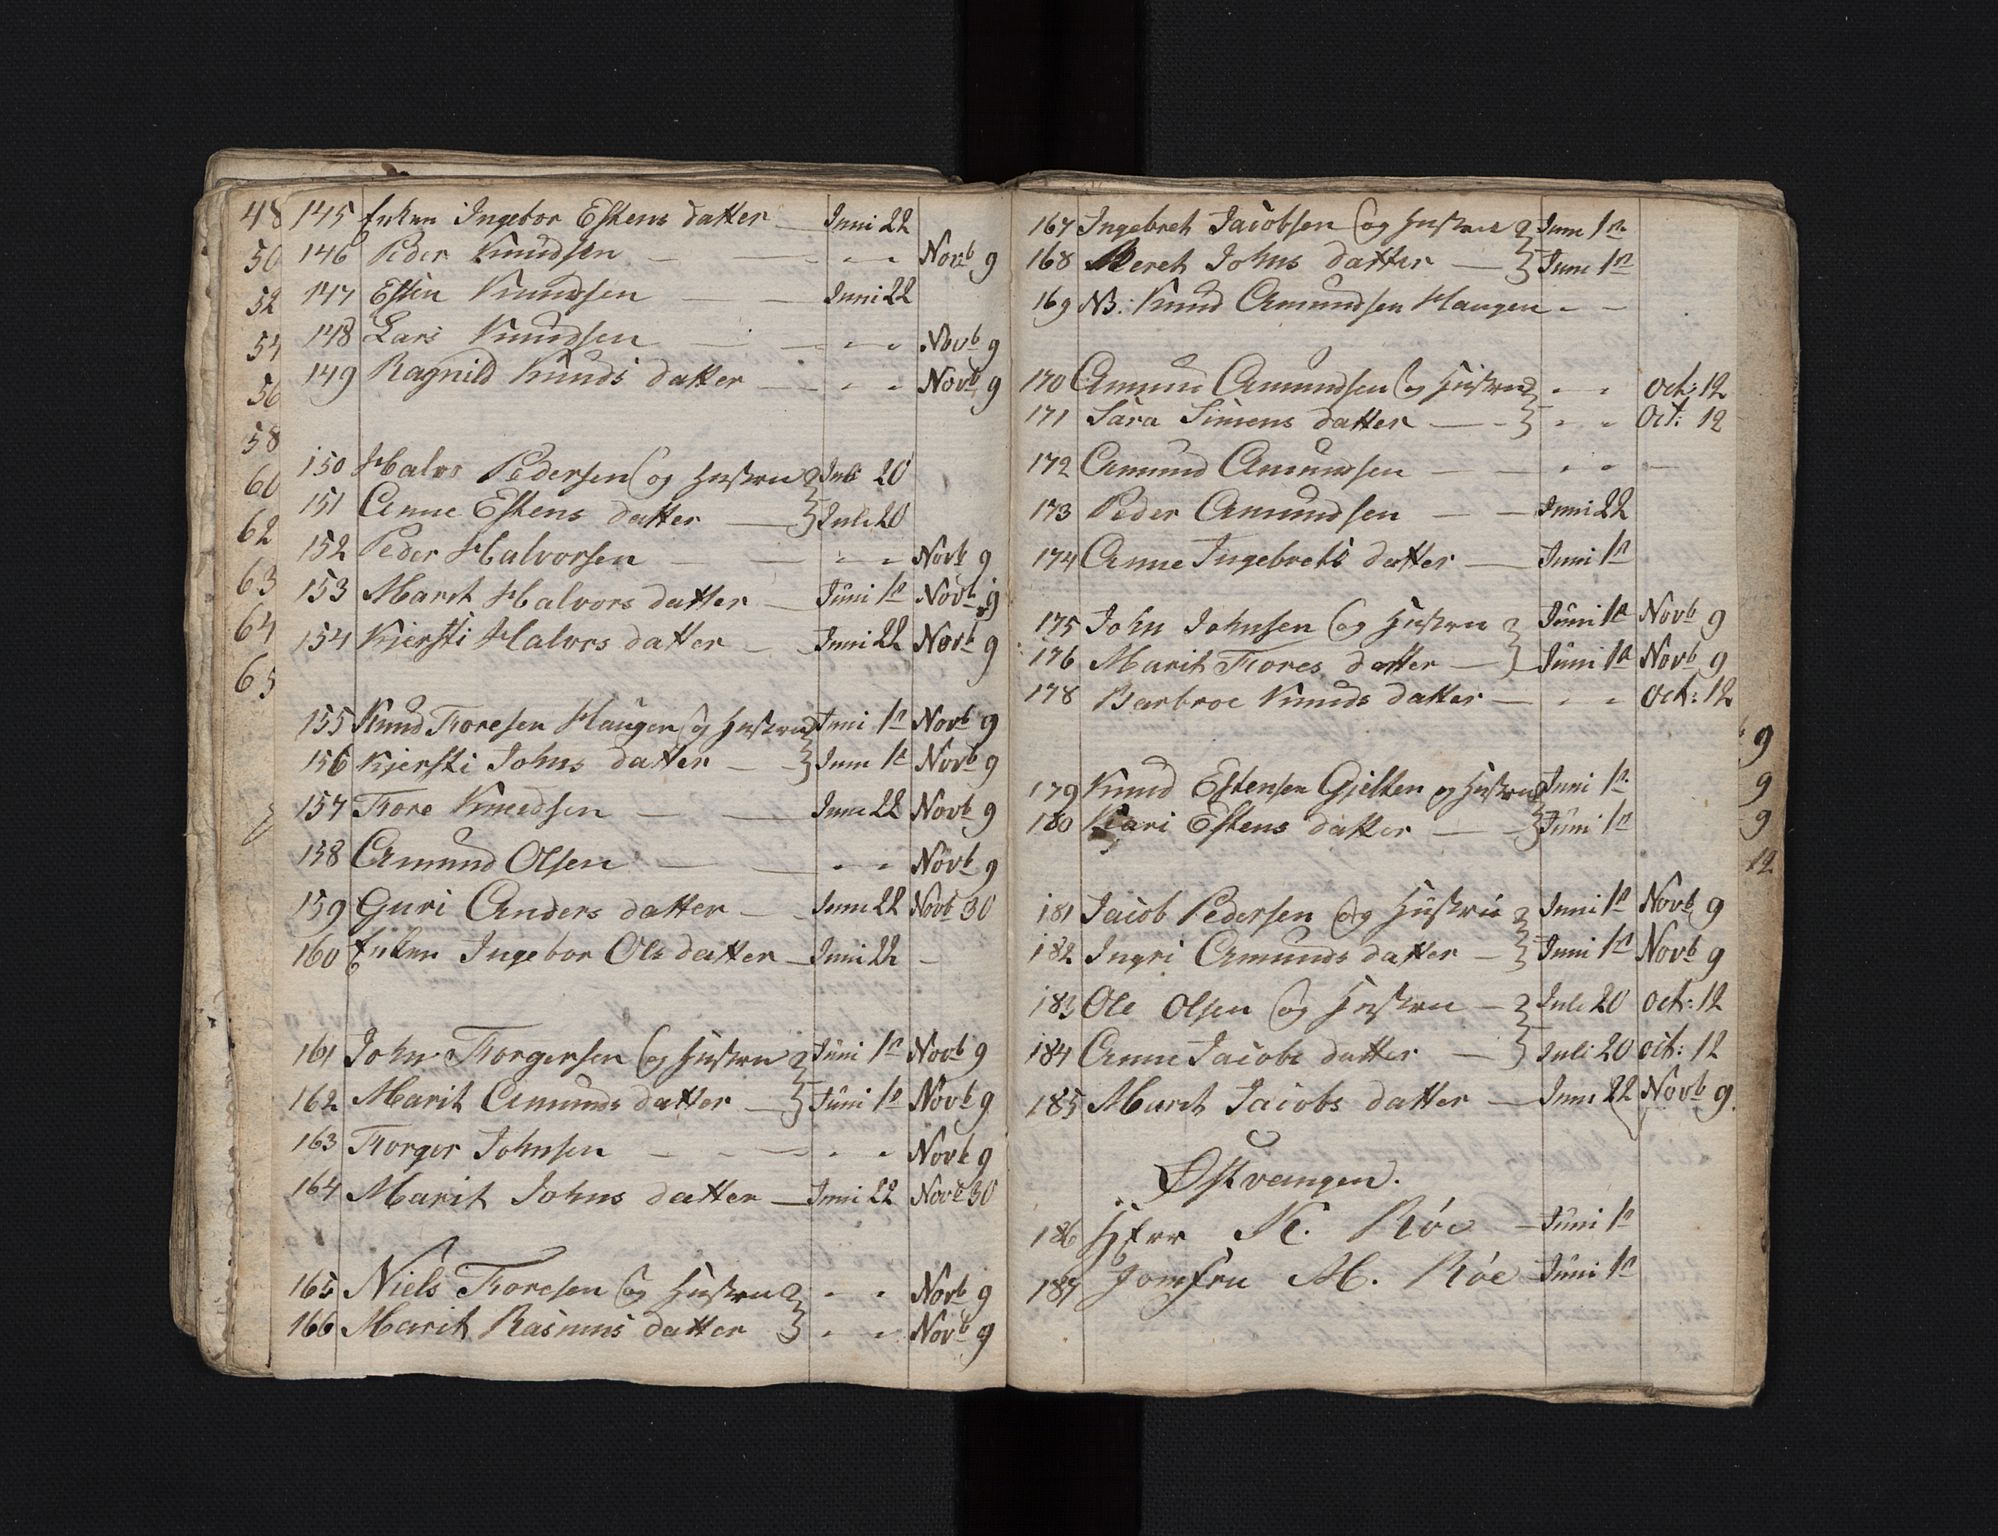 48 145 Enken Ingebor Estens datter — Juni 22
50 146 Peder Knudsen — — - - Novb 9
52 147 Esten Knudsen — — Juni 22
54 148 Lars Knudsen — — - - Novb 9
56 149 Ragnild Knuds datter — - - Novb 9
58
60 150 Halvo Pedersen (og Hustru } Juli 20
62 151 Anne Estens datter — } Juli 20
63 152 Peder Halvorsen — — - - Novb 9
64 153 Marit Halvors datter — Juni 1n Novb 9
65 154 Kjersti Halvors datter — Juni 22 Novb 9
155 Knud Toresen Haugen (og Hustru } Juni 1n Novb 9
156 Kjersti Johns datter — } Juni 1n Novb 9
157 Tore Knudsen — — Juni 22 Novb 9
158 Amund Olsen — — - - Novb 9
159 Guri Anders datter — Juni 22 Novb 30
160 Enken Ingebor Ols datter — Juni 22 -
161 John Torgersen (og Hustru } Juni 1n Novb 9
162 Marit Amunds datter — } Juni 1n Novb 9
163 Torger Johnsen — - - — - - Novb 9
164 Marit Johns datter — Juni 22 Novb 30
165 Niels Toresen (og Hustru } - - Novb 9
166 Marit Rasmus datter } - - Novb 9
167 Ingebret Jacobsen (og Hustrue } Juni 1n
168 Beret Johns datter — } Juni 1n
169 NB: Knud Amundsen Haugen - -
170 Amund Amundsen (og Hustru } - - oct: 12
171 Sara Simens datter — - } - - Oct: 12
172 Amund Amundsen — — - - -
173 Peder Amundsen — — Juni 22
174 Anne Ingebrets datter — Juni 1n
175 John Johnsen (og Hustru } Juni 1n Novb 9
176 Marit Tores datter — } Juni 1n Novb 9
178 Barbroe Knuds datter — - - Oct: 12
179 Knud Estensen Gjelten og Hustru } Juni 1n
180 Kari Estens datter — - } Juni 1n
181 Jacob Pedersen (og Hustru } Juni 1n Novb 9
182 Ingri Amunds datter — } Juni 1n Novb 9
183 Ole Olsen (og Hustru — } Juli 20 oct: 12
184 Anne Jacobs datter — } Juli 20 oct: 12
185 Marit Jacobs datter — Juni 22 Novb 9.
Østvangen.
186 Herr K. Røe — Juni 1n
187 Jomfru M. Røe — Juni 1n
9
9
9
12